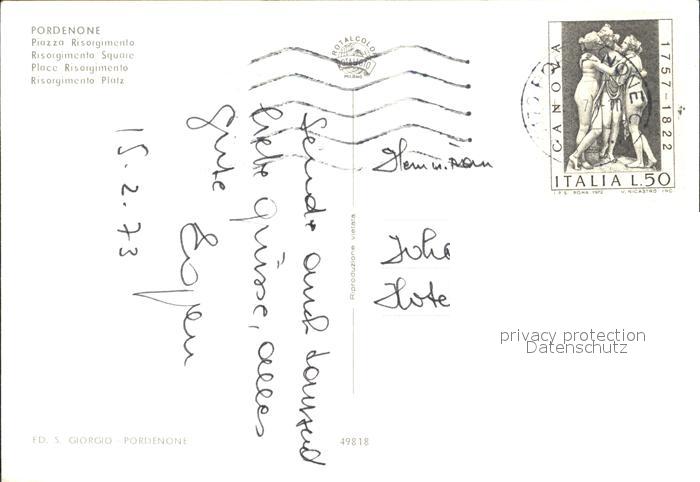 PORDENONE
Piazza Risorgimento
Risorgimento Square
Place Risorgimento
Risorgimento Platz
15. 2. 73
Sendet auch tausend
liebe Grüsse, alles
Gute
ROTALCOLOR
MILANO
Riproduzione vietata
Herrn u. Frau
CANOVA
1757-1822
ITALIA L.50
I.P.S. ROMA 1972 V. NICASTRO INC.
privacy protection
Datenschutz
ED. S. GIORGIO - PORDENONE
49818